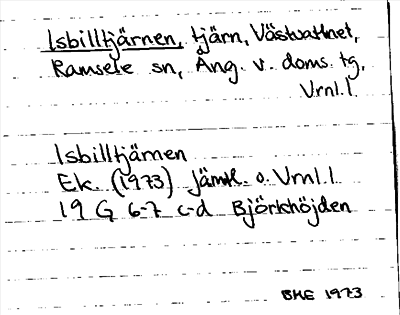 Isbilltjärnen, tjärn, Västvattnet,
Ramsele sn, Ång. v. doms. tg,
Vrnl.l.
Isbilltjärnen
Ek. (1973) Jämtl. o. Vrnl.l.
19 G 6-7 c-d Björkhöjden
BME 1973